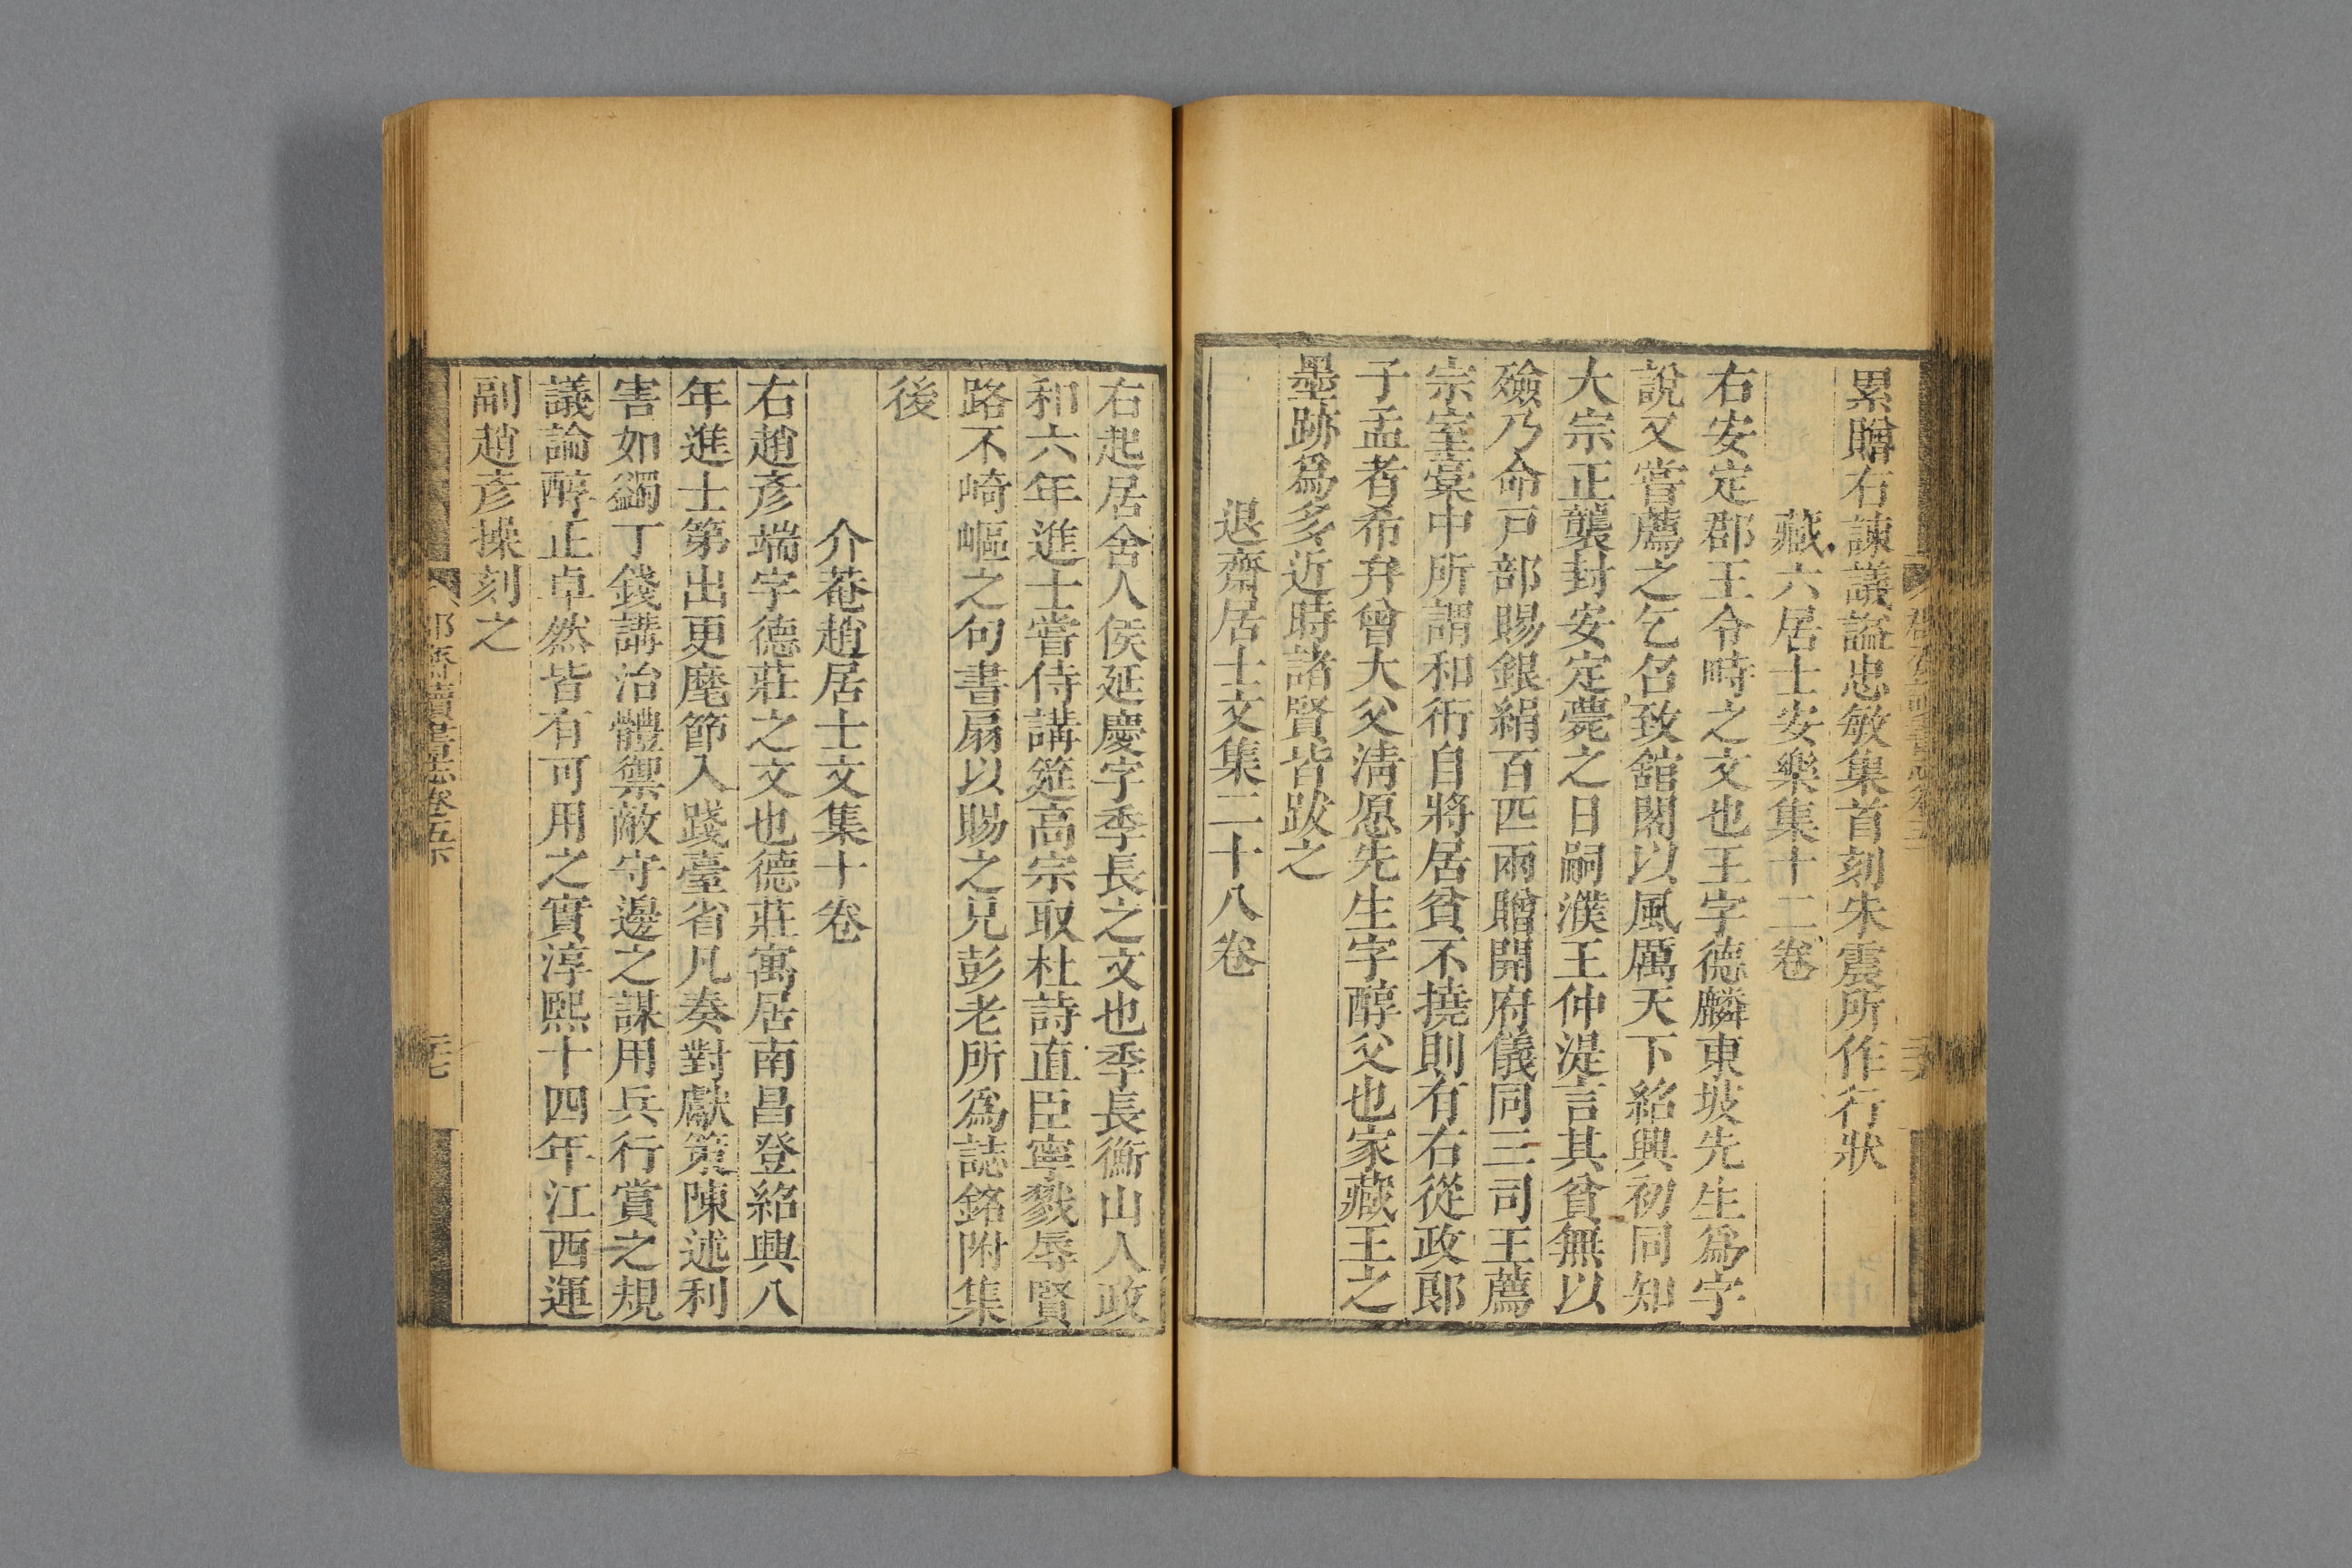 累贈右諫議謚忠敏集首刻朱震所作行狀
藏六居士安樂集十二卷
右安定郡王令畤之文也王字德麟東坡先生爲字
說又嘗薦之乞名致舘閣以風厲天下紹興初同知
大宗正襲封安定薨之日嗣濮王仲湜言其貧無以
殮乃命戸部賜銀絹百匹兩贈開府儀同三司王薦
宗室臺中所謂和術自將居貧不撓則有右從政郎
子孟者希弁曾大父淸愿先生字醇父也家藏王之
墨跡爲多近時諸賢皆跋之
退齋居士文集二十八卷
右起居舍人侯延慶字季長之文也季長衡山人政
和六年進士嘗侍講筵高宗取杜詩直臣寧戮辱賢
路不崎嶇之句書扇以賜之兄彭老所爲誌銘附集
後
介菴趙居士文集十卷
右趙彥端字德莊之文也德莊寓居南昌登紹興八
年進士第出更麾節入踐臺省凡奏對獻策陳述利
害如蠲丁錢講治體禦敵守邊之謀用兵行賞之規
議論醇正卓然皆有可用之實淳熙十四年江西運
副趙彥操刻之
郡齋讀書志卷五下